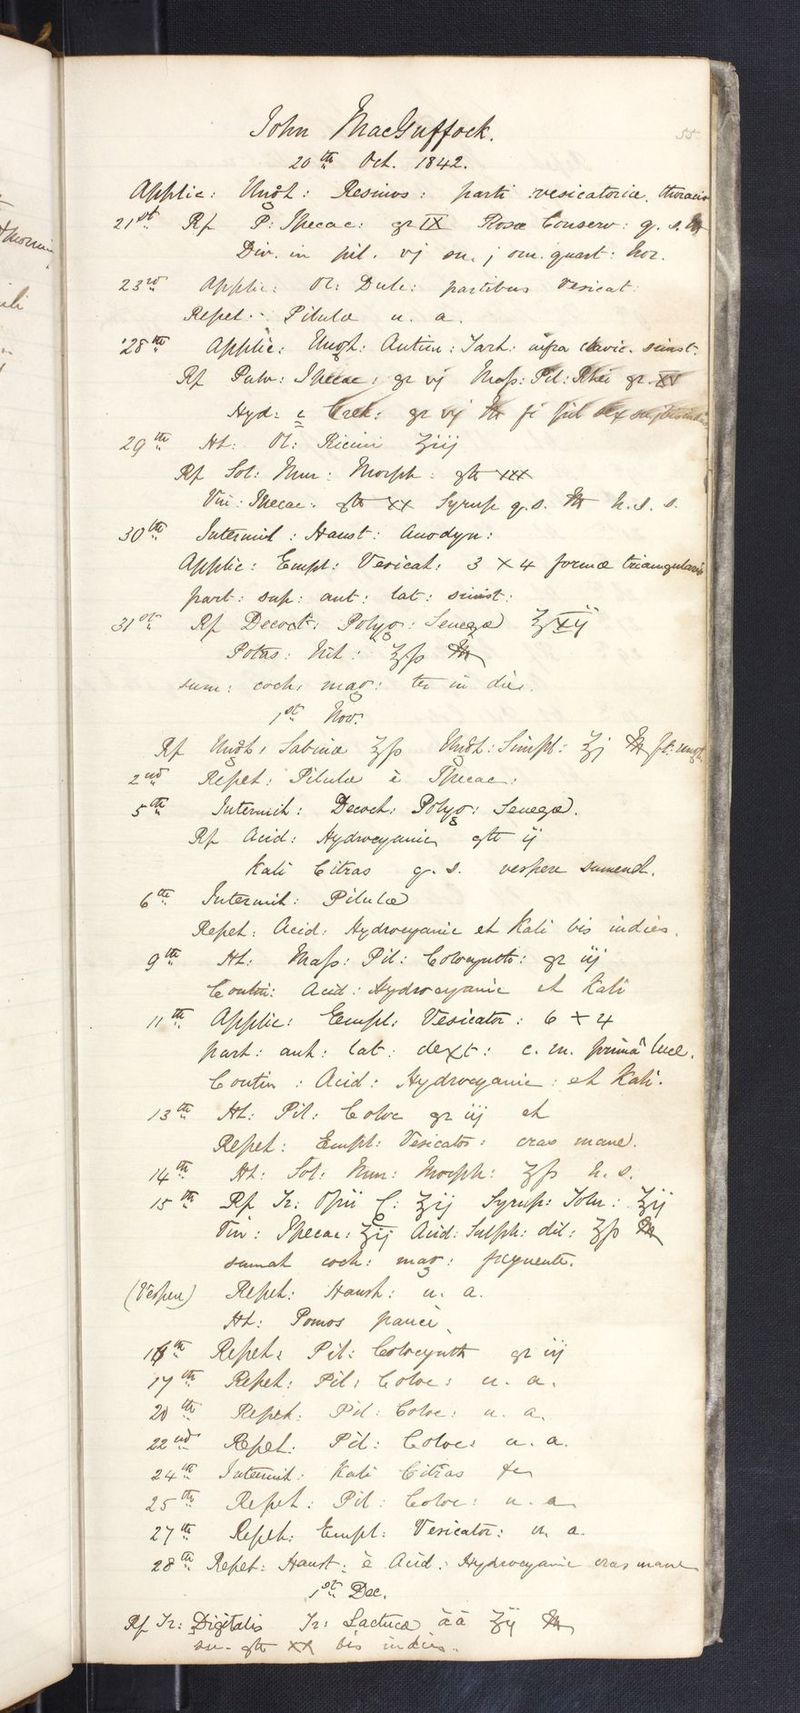 55
John MacGuffock.
20th Oct. 1842.
Applic: Ungt: Resinos: parti vesicatoriæ thoracis
21st Rf P: Ipecac: gr IX Rosæ Conserv: q. s. M
Div. in pil. vj su. j om. quart: hor.
23rd Applic: Ol: Dulc: partibus vesicat:
Repet: Pilulæ u. a.
28th Applic: Ungt: Antim: Tart: infra clavic. sinist:
Rf Pulv: Ipecac: gr vj Mass: Pil: Rhei gr. XV
Hyd: c Cret: gr vj M fi pil sex
29th Ht: Ol: Ricini ʒiij
Rf Sol: Mur: Morph: gtt XXX
Vin: Ipecac: gtt XX Syrup q. s. M h. s. s.
30th Intermit: Haust: Anodyn:
Applic: Empl: Vesicat: 3 × 4 formæ triangularis
part: sup: ant: lat: sinist:
31st Rf Decoct: Polyg: Senegæ ℥xij
Potas: Nit: ʒss M
sum: coch: mag: ter in die.
1st Nov.
Rf Ungt: Sabinæ ʒss Ungt: Simpl: ʒj M ft: ungt
2nd Repet: Pilulæ è Ipecac:
5th Intermit: Decoct: Polyg: Senegæ.
Rf Acid: Hydrocyanic gtt ij
Kali Citras q. s. vespere sumend.
6th Intermit: Pilulæ
Repet: Acid: Hydrocyanic et Kali bis indies.
9th Ht: Mass: Pil: Colocynth: gr iij
Contin: Acid: Hydrocyanic et Kali
11th Applic: Empl: Vesicator: 6 × 4
part: ant: lat: dext: c. m. primâ luce.
Contin: Acid: Hydrocyanic: et Kali.
13th Ht: Pil: Coloc gr iij et
Repet: Empl: Vesicator: cras mane.
14th Ht: Sol: Mur: Morph: ʒss h. s.
15th Rf Tr: Opii C: ʒij Syrup: Tolu: ʒij
Vin: Ipecac: ʒij Acid: Sulph: dil: ʒss M
sumat coch: mag: frequente.
(Vespere) Repet: Haust: u. a.
Ht: Pomos pauci.
16th Repet: Pil: Colocynth gr iij
17th Repet: Pil: Coloc: u. a.
20th Repet: Pil: Coloc: u. a.
22nd Repet: Pil: Coloc: u. a.
24th Intermit: Kali Citras &c
25th Repet: Pil: Coloc: u. a.
27th Repet: Empl: Vesicator: u. a.
28th Repet: Haust: è Acid: Hydrocyanic cras mane
1st Dec.
Rf Tr: Digitalis Tr: Lactucæ āā ʒij M
su. gtt XX bis indies.